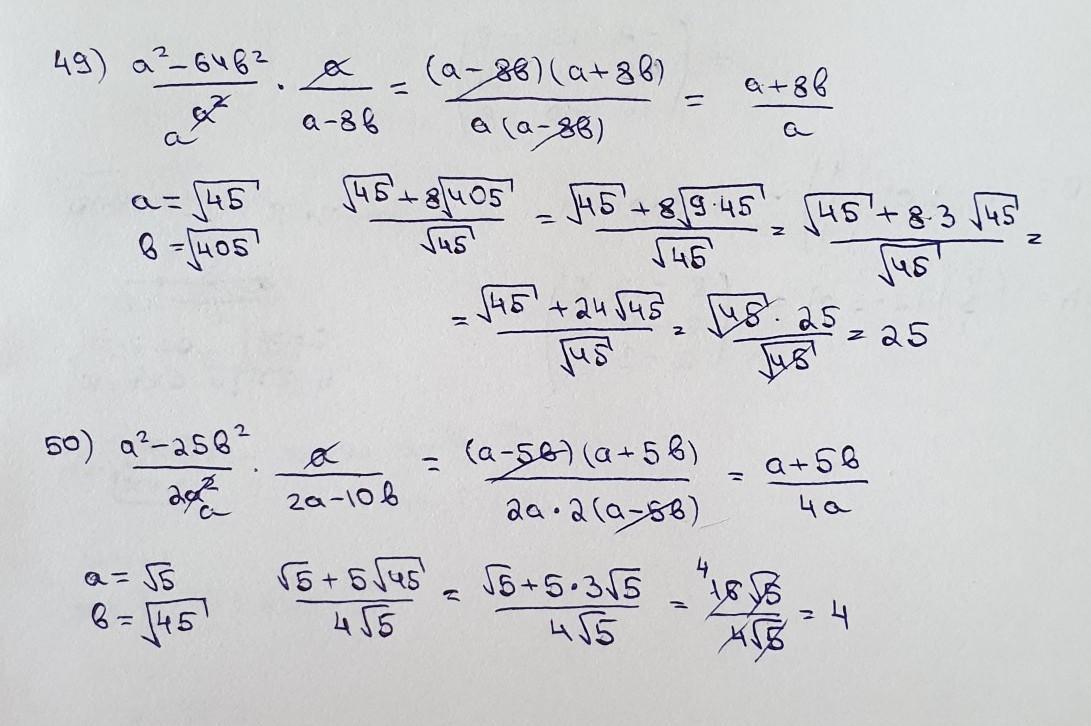 49) (a²-64b²)/a² · a/(a-8b) = ((a-8b)(a+8b))/(a(a-8b)) = (a+8b)/a
a=√45 (√45+8√405)/√45 = (√45+8√(9·45))/√45 = (√45+8·3√45)/√45 =
b=√405
= (√45+24√45)/√45 = (√45·25)/√45 = 25
50) (a²-25b²)/(2a²) · a/(2a-10b) = ((a-5b)(a+5b))/(2a·2(a-5b)) = (a+5b)/(4a)
a=√5 (√5+5√45)/(4√5) = (√5+5·3√5)/(4√5) = (16√5)/(4√5) = 4
b=√45